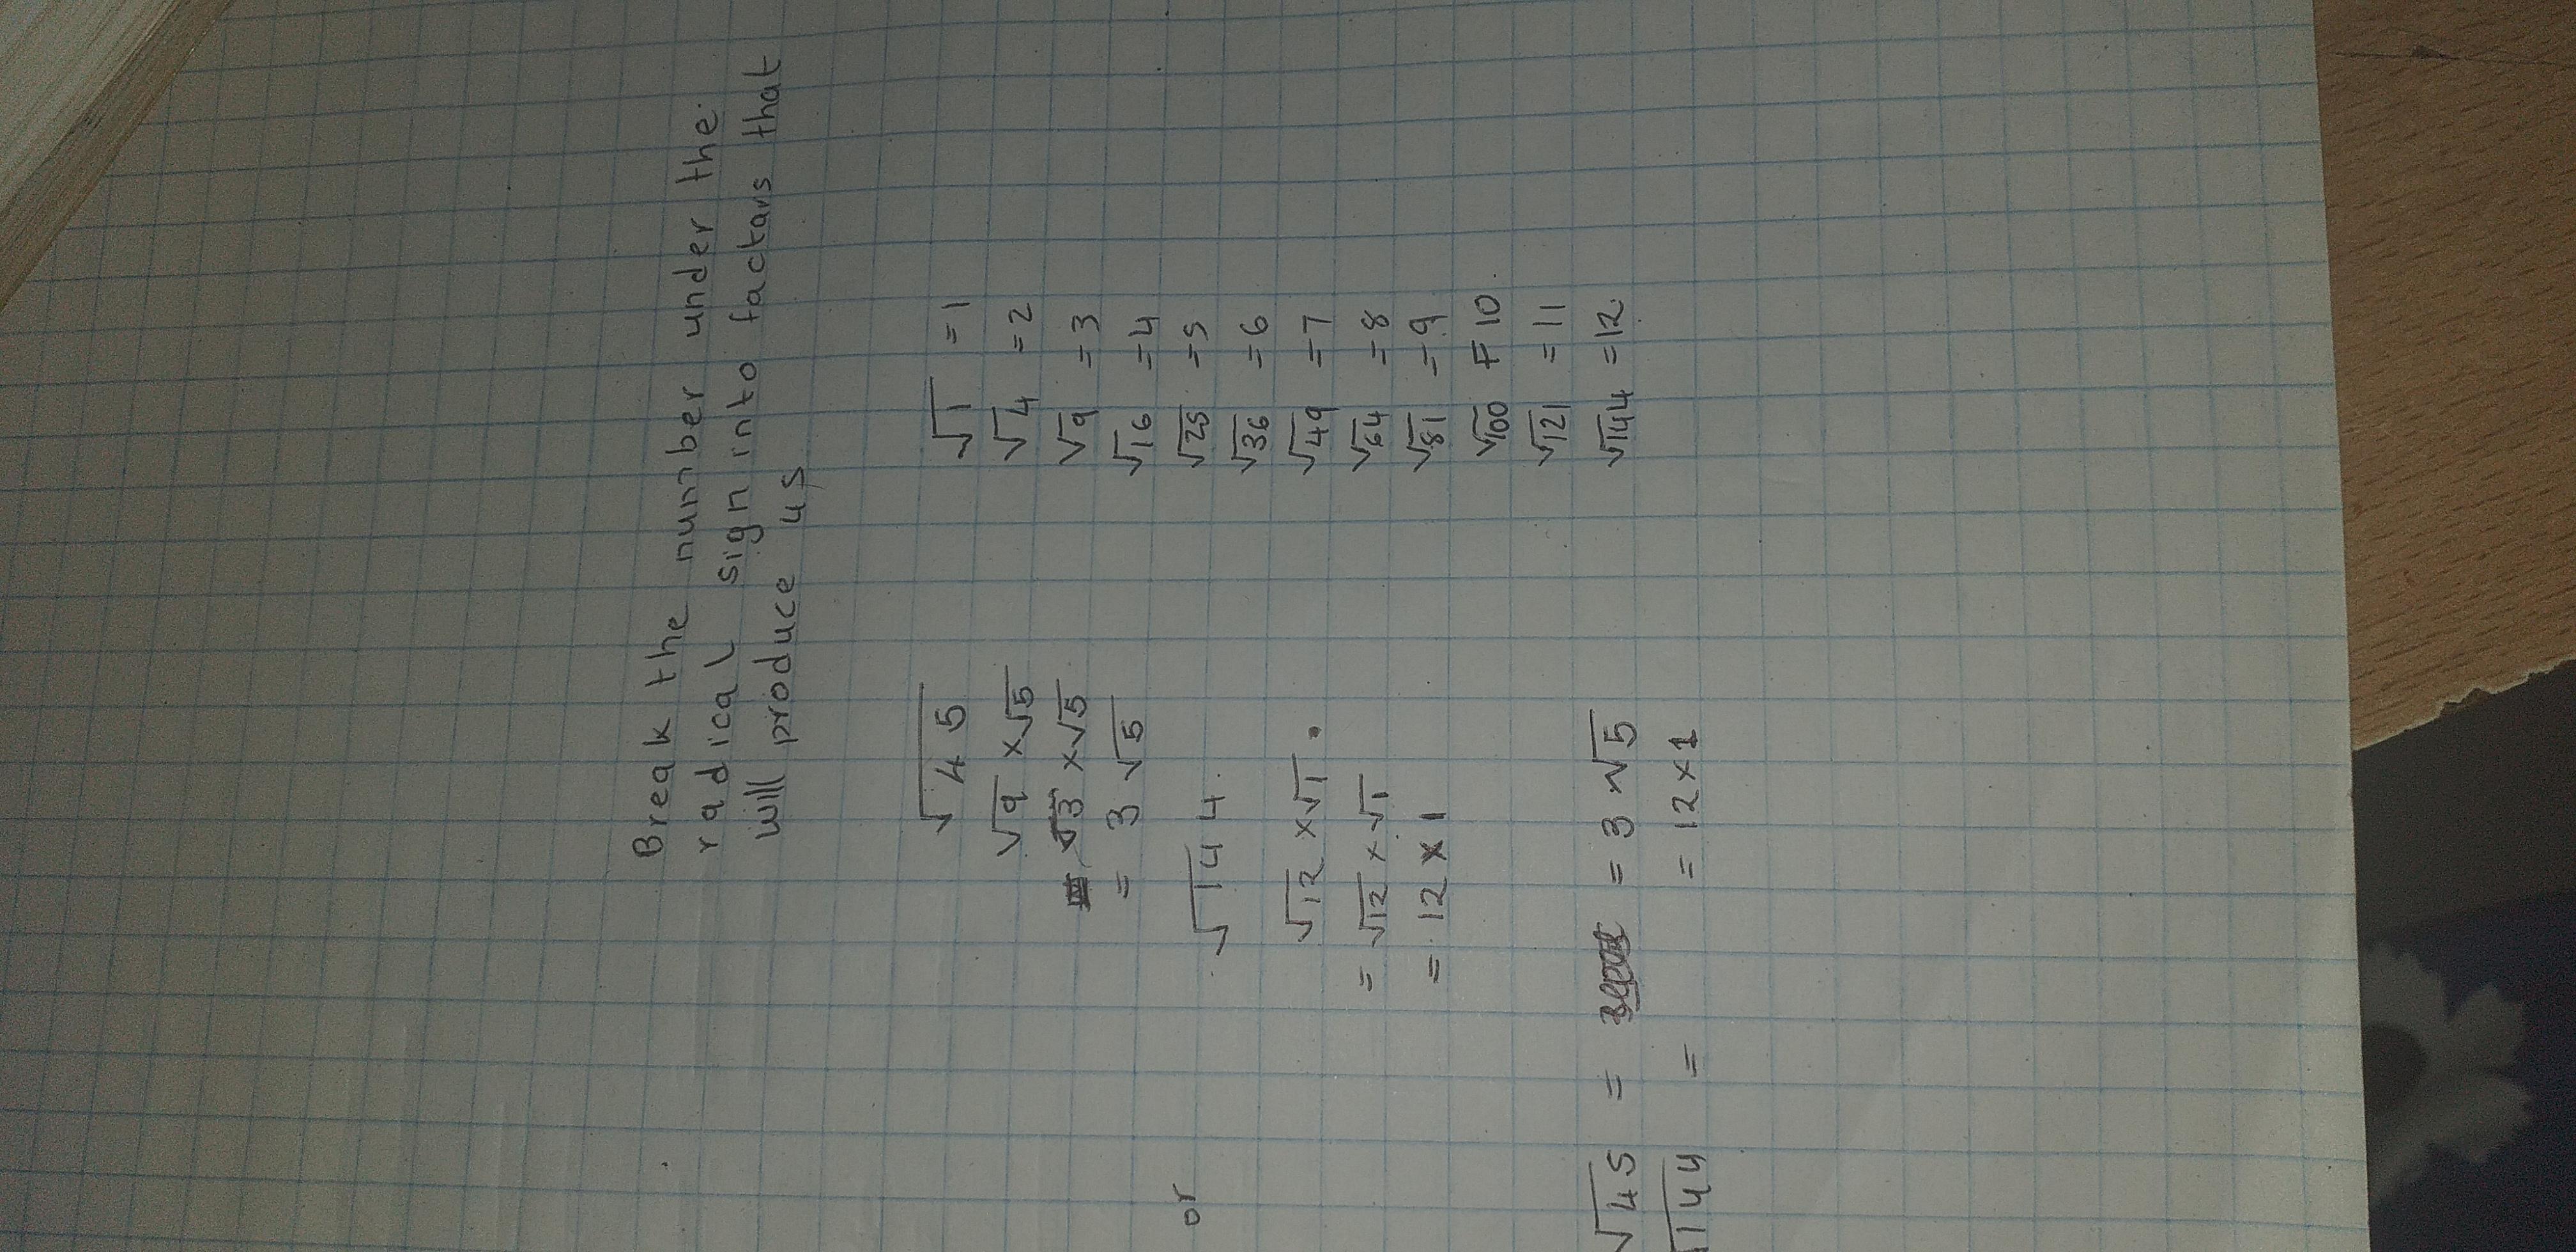 Break the number under the
radical sign into factors that
will produce us
√45
√9 × √5
√3 × √5
= 3 √5
√144
√12 × √1
= √12 × √1
= 12 × 1
√1 = 1
√4 = 2
√9 = 3
√16 = 4
√25 = 5
√36 = 6
√49 = 7
√64 = 8
√81 = 9
√100 = 10
√121 = 11
√144 = 12
or
√45 = = 3 √5
√144 = = 12 × 1